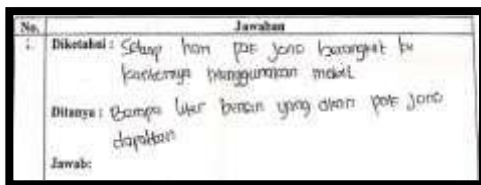 No. Jawaban
1. Diketahui : Setiap hari pak jono berangkat ke
kantornya menggunakan mobil
Ditanya : Berapa liter bensin yang akan pak jono
dapatkan
Jawab: